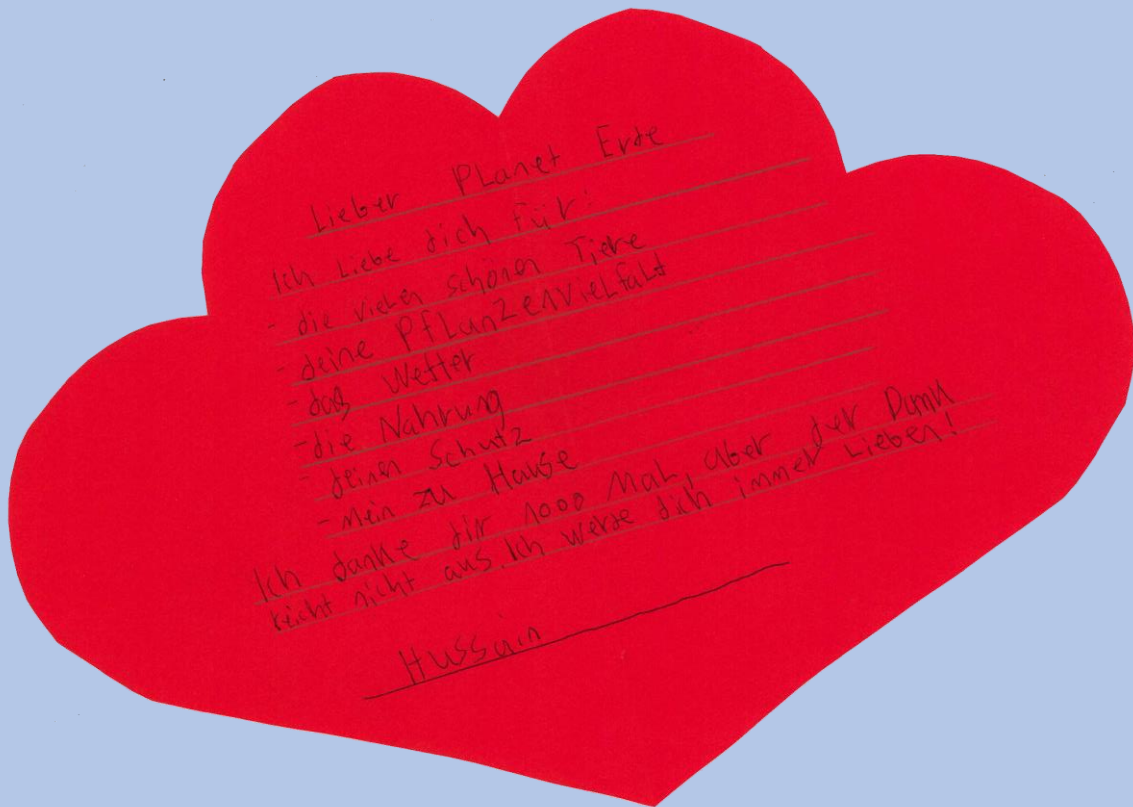 Lieber Planet Erde
Ich Liebe dich für:
- die vielen schönen Tiere
- deine PfLanzenvieLfaLt
- daß Wetter
- die Nahrung
- deinen Schutz
- mein zu Hause
Ich danke dir 1000 MaL, aber der Dank
reicht nicht aus. Ich werde dich immer Lieben!
Hussain